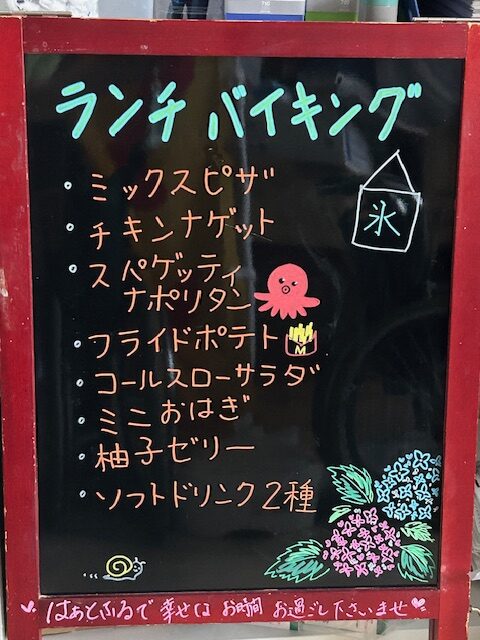 ランチ バイキング
・ミックスピザ
・チキンナゲット
・スパゲッティ
ナポリタン
・フライドポテト
M
・コールスローサラダ
・ミニおはぎ
・柚子ゼリー
・ソフトドリンク2種
氷
はぁとふるで 幸せな お時間 お過ごし下さいませ